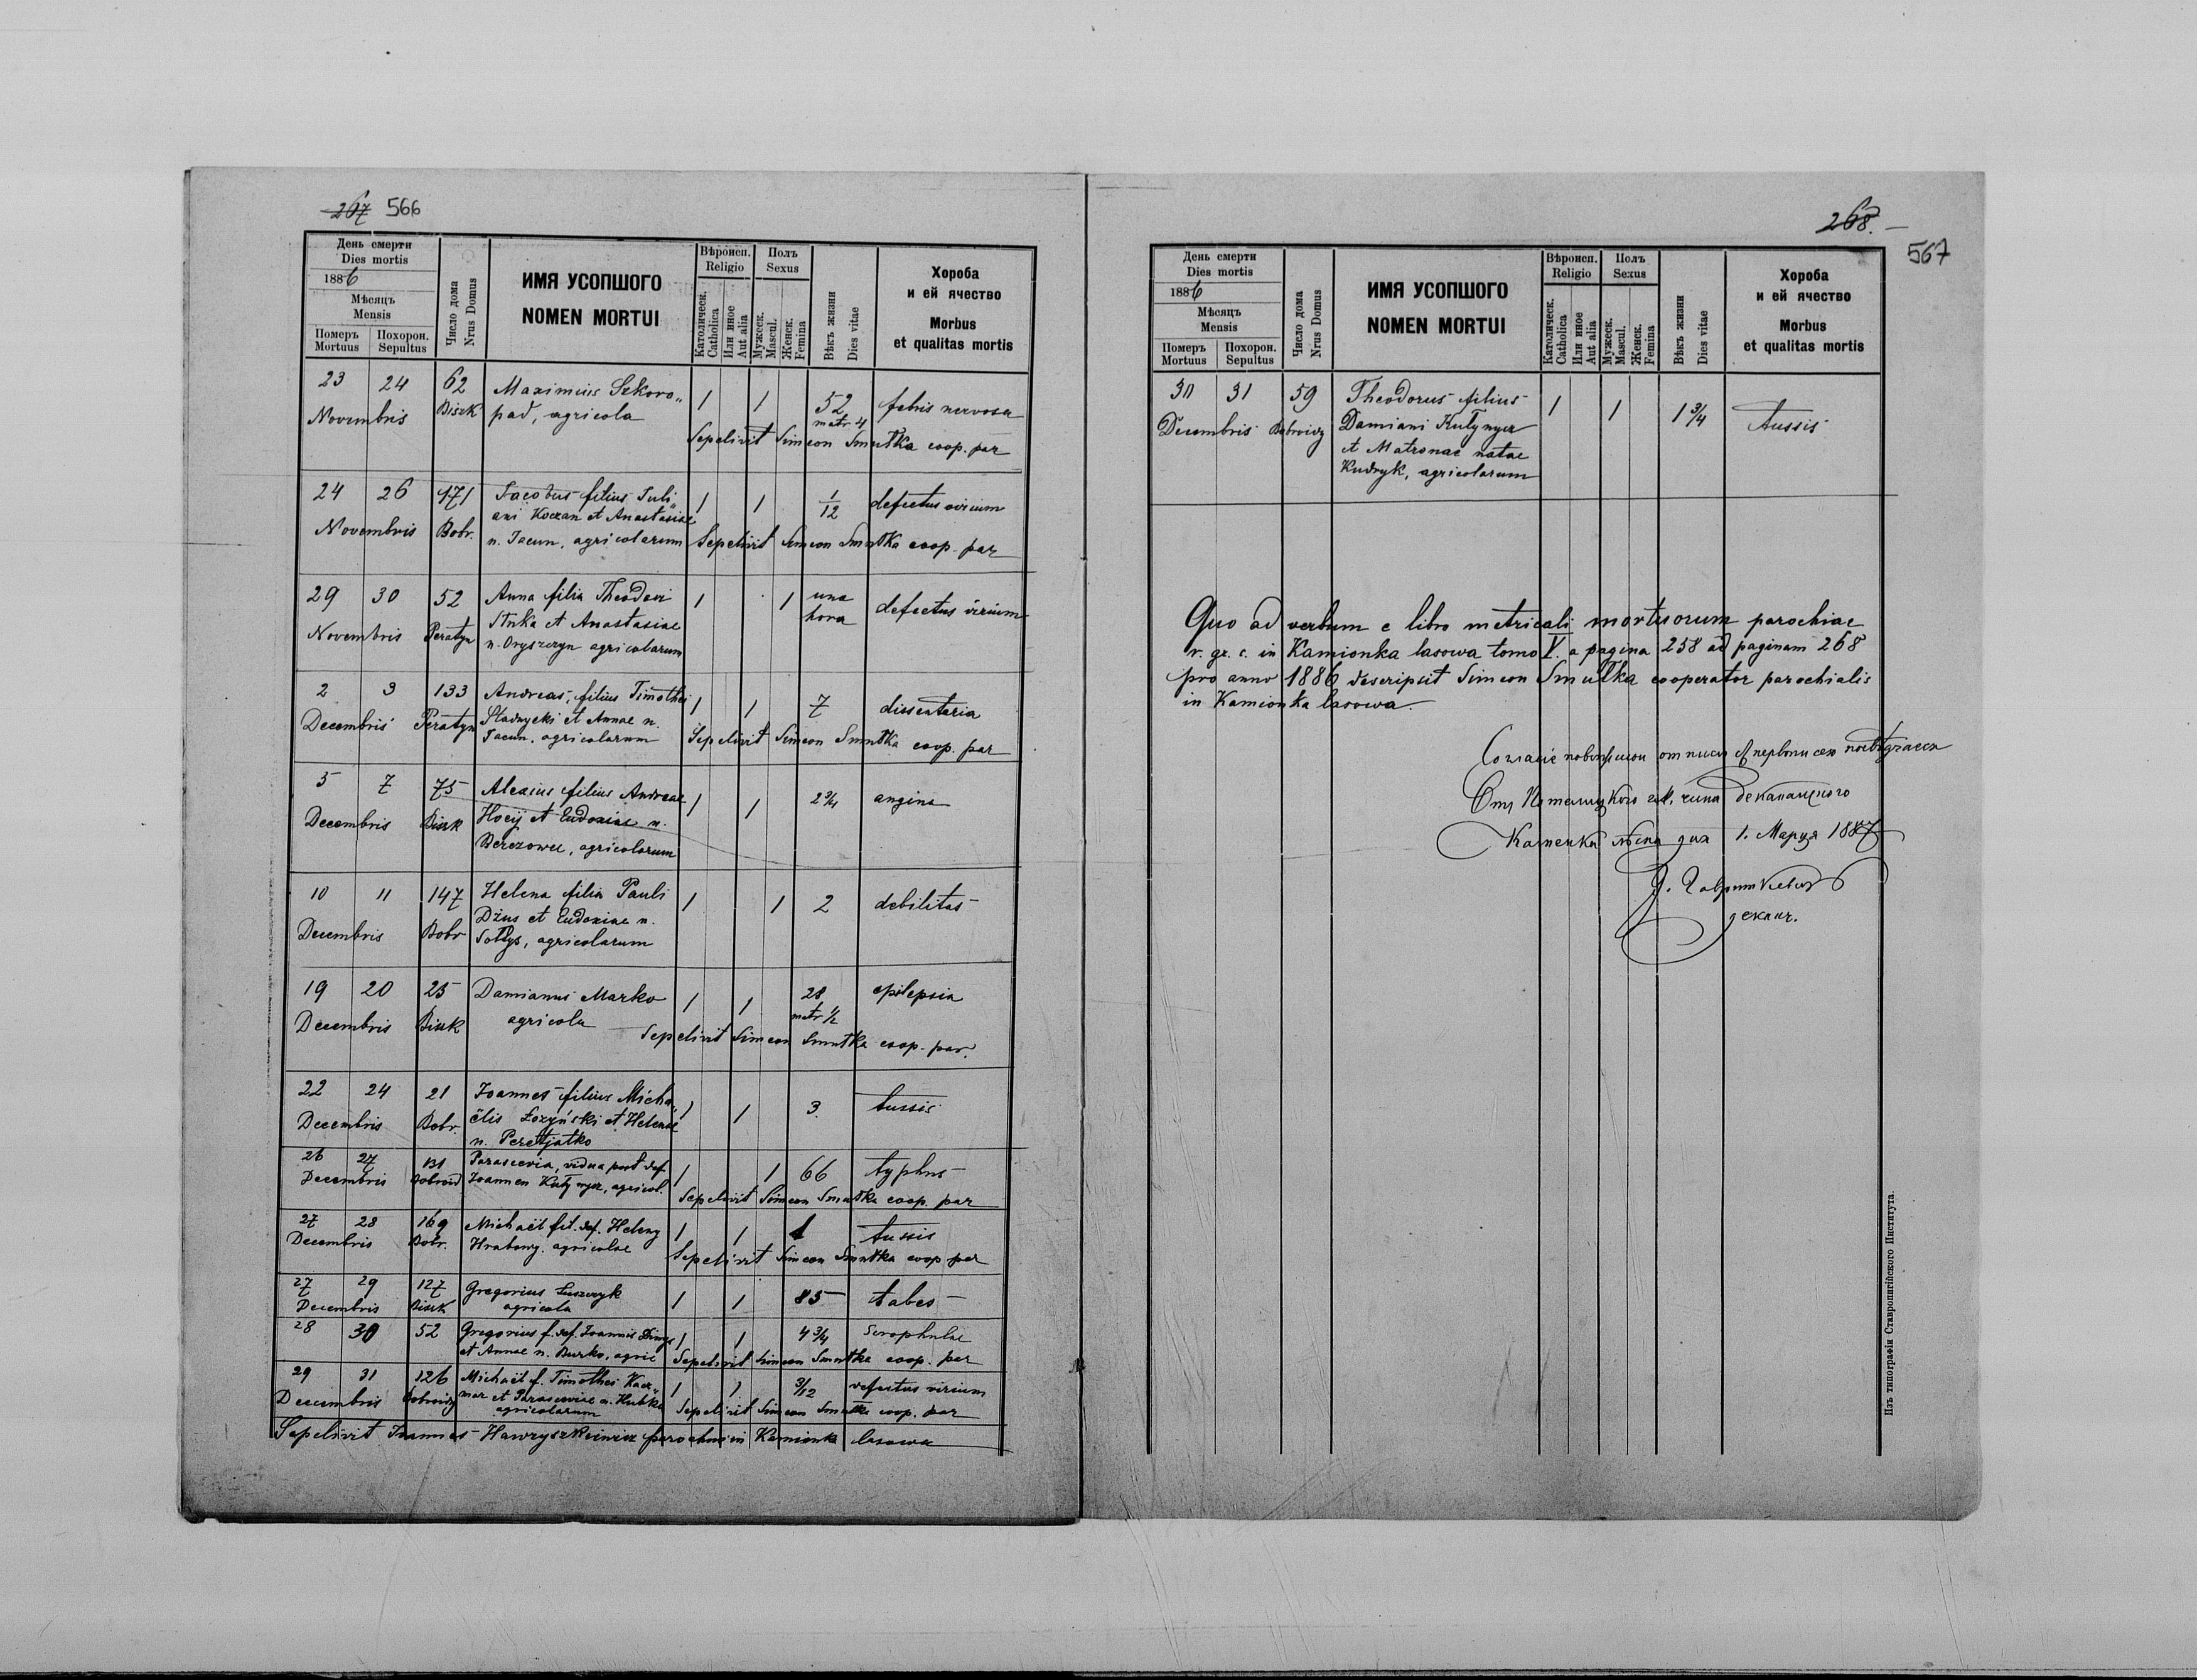 267 566
День смерти
Dies mortis
1886
Мѣсяцъ
Mensis
Померъ Похорон.
Mortuus Sepultus
Число дома
Nrus Domus
ИМЯ УСОПШОГО
NOMEN MORTUI
Вѣроисп.
Religio
Католическ.
Catholica
Или иное
Aut alia
Полъ
Sexus
Мужеск.
Mascul.
Женск.
Femina
Вѣкъ жизни
Dies vitae
Хороба
и ей ячество
Morbus
et qualitas mortis
23 24 62 Maximius Szkoro„ 1 1 52 febris nervosa
Novembris Biszk pad, agricola matr 4
Sepelivit Simeon Smutka coop. par
24 26 171 Jacobus filius Juli„ 1 1 1/12 defectus virium
ani Koczan et Anastasiae
Novembris Bobr. n. Jacun, agricolarum Sepelivit Simeon Smutka coop. par
29 30 52 Anna filia Theodori 1 1 una hora defectus virium
Struka et Anastasiae
Novembris Peratyn n. Oryszczyn agricolarum
2 3 133 Andreas, filius Timothei 1 1 7 dissenteria
Decembris Peratyn Stadnycki et Annae n.
Jacun. agricolarum Sepelivit Simeon Smutka coop. par
5 7 75 Alexius filius Andreae 1 1 2 3/4 angina
Decembris Biszk Hocij et Eudoxiae n.
Berezowec, agricolarum
10 11 147 Helena filia Pauli 1 1 2 debilitas
Dżus et Eudoxiae n.
Decembris Bobr Sołtys, agricolarum
19 20 25 Damianus Marko 1 1 28 epilepsia
Decembris Biszk agricola matr 1/2
Sepelivit Simeon Smutka coop. par.
22 24 21 Joannes filius Micha„ 1 1 3. tussis
Decembris Bobr. ëlis Łozyński et Helenae
n. Peretjatko
26 27 131 Parascevia, vidua post def. 1 1 66 typhus
Decembris Bobroid. Joannen Kutynyer, agricol.
Sepelivit Simeon Smutka coop. par
27 28 169 Michaël fil. def. Heleny 1 1 1 tussis
Decembris Bobr. Hrabowy. agricolae
Sepelivit Simeon Smutka coop par
27 29 127 Gregorius Łuszczyk 1 1 85 tabes
Decembris Biszk agricola
28 30 52 Gregorius f. def. Joannis 1 1 4 3/4 Scrophulae
et Annae n. Burko, agric Sepelivit Simeon Smutka coop. par
29 31 126 Michaël f. Timothei Kacz„ 1 1 3/12 defectus virium
Decembris Bobroidy mar et Parasceviae n. Hubka
agricolarum Sepelivit Simeon Smutka coop. par
Sepelivit Joannes Hawryszkiewicz parochus in Kamionka lasowa
268.
567
День смерти
Dies mortis
1886
Мѣсяцъ
Mensis
Померъ Похорон.
Mortuus Sepultus
Число дома
Nrus Domus
ИМЯ УСОПШОГО
NOMEN MORTUI
Вѣроисп.
Religio
Католическ.
Catholica
Или иное
Aut alia
Полъ
Sexus
Мужеск.
Mascul.
Женск.
Femina
Вѣкъ жизни
Dies vitae
Хороба
и ей ячество
Morbus
et qualitas mortis
30 31 59 Theodorus filius 1 1 1 3/4 tussis
Decembris Bobroidy Damiani Kutynyer
et Matronae natae
Kudryk, agricolarum
Quo ad verbum e libro metricali mortuorum parochiae
r. gr. c. in Kamionka lasowa tomo V. a pagina 258 ad paginam 268
pro anno 1886 descripsit Simeon Smutka cooperator parochialis
in Kamionka lasowa.
Согласіе повысшои отписи съ первописею посвѣдчаеся
Отъ Потелицкого деканального
Каменка лѣсна дня 1. Марця 1887
деканъ.
Изъ типографіи Ставропигійского Института.